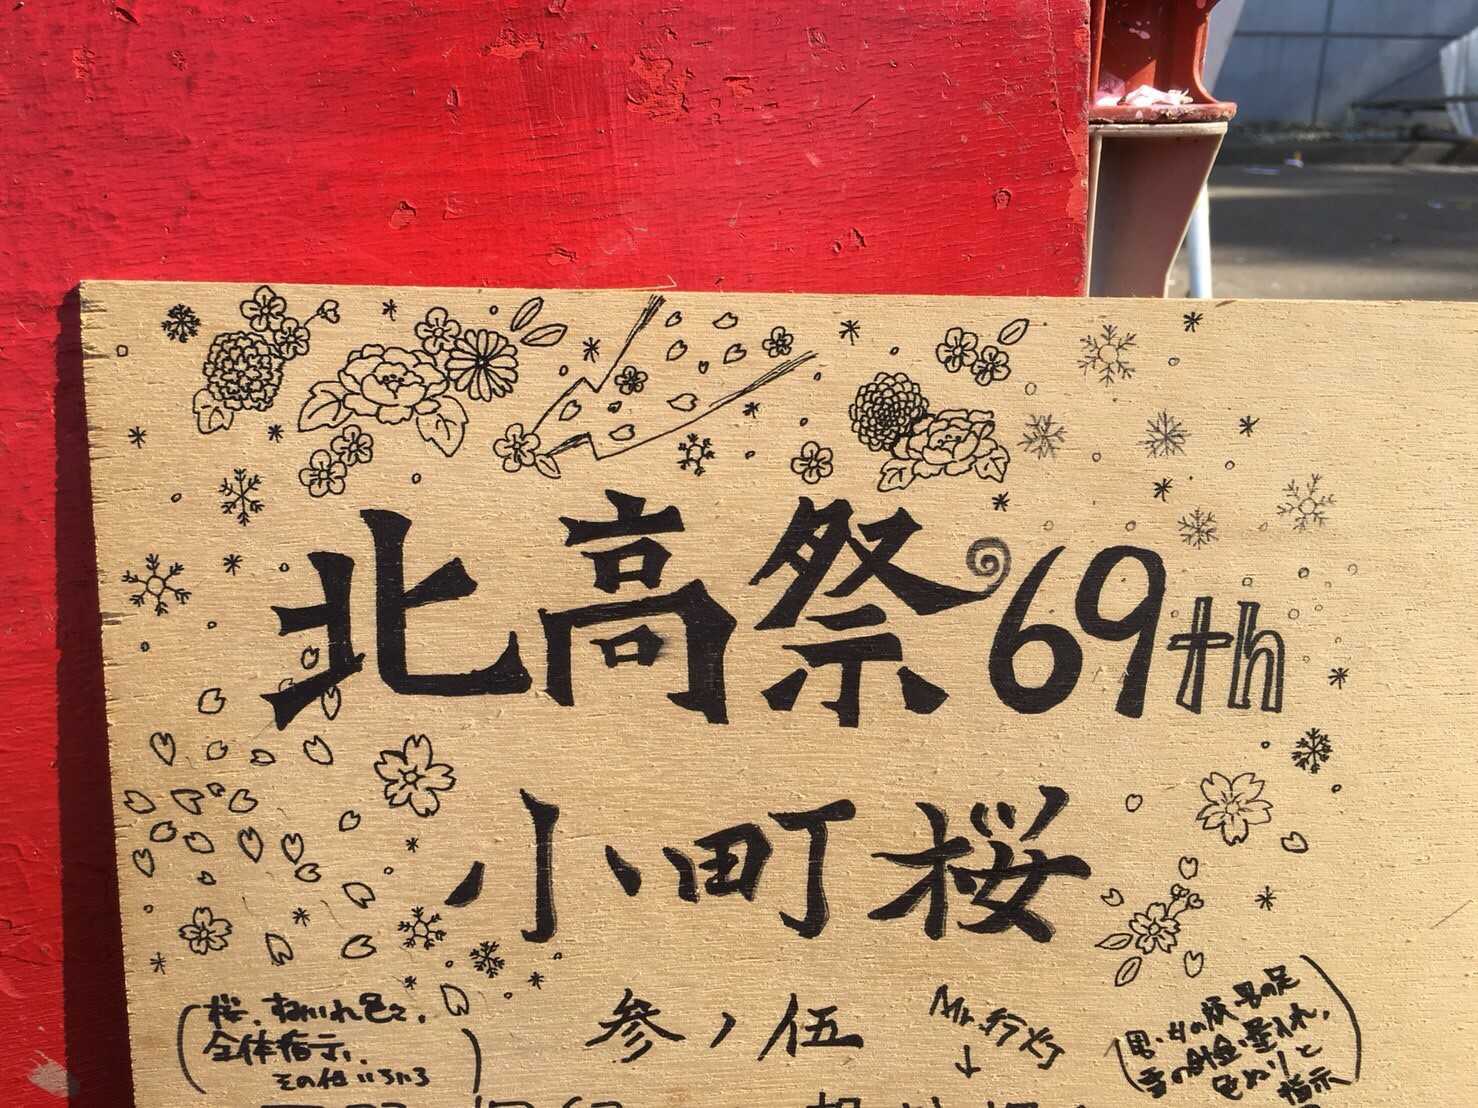 北高祭69th
小町桜
参ノ伍
Mr.行灯
桜、すみいれ色々、
全体指示、
その他いろいろ
男・女の顔、男の足
色ぬりと
指示